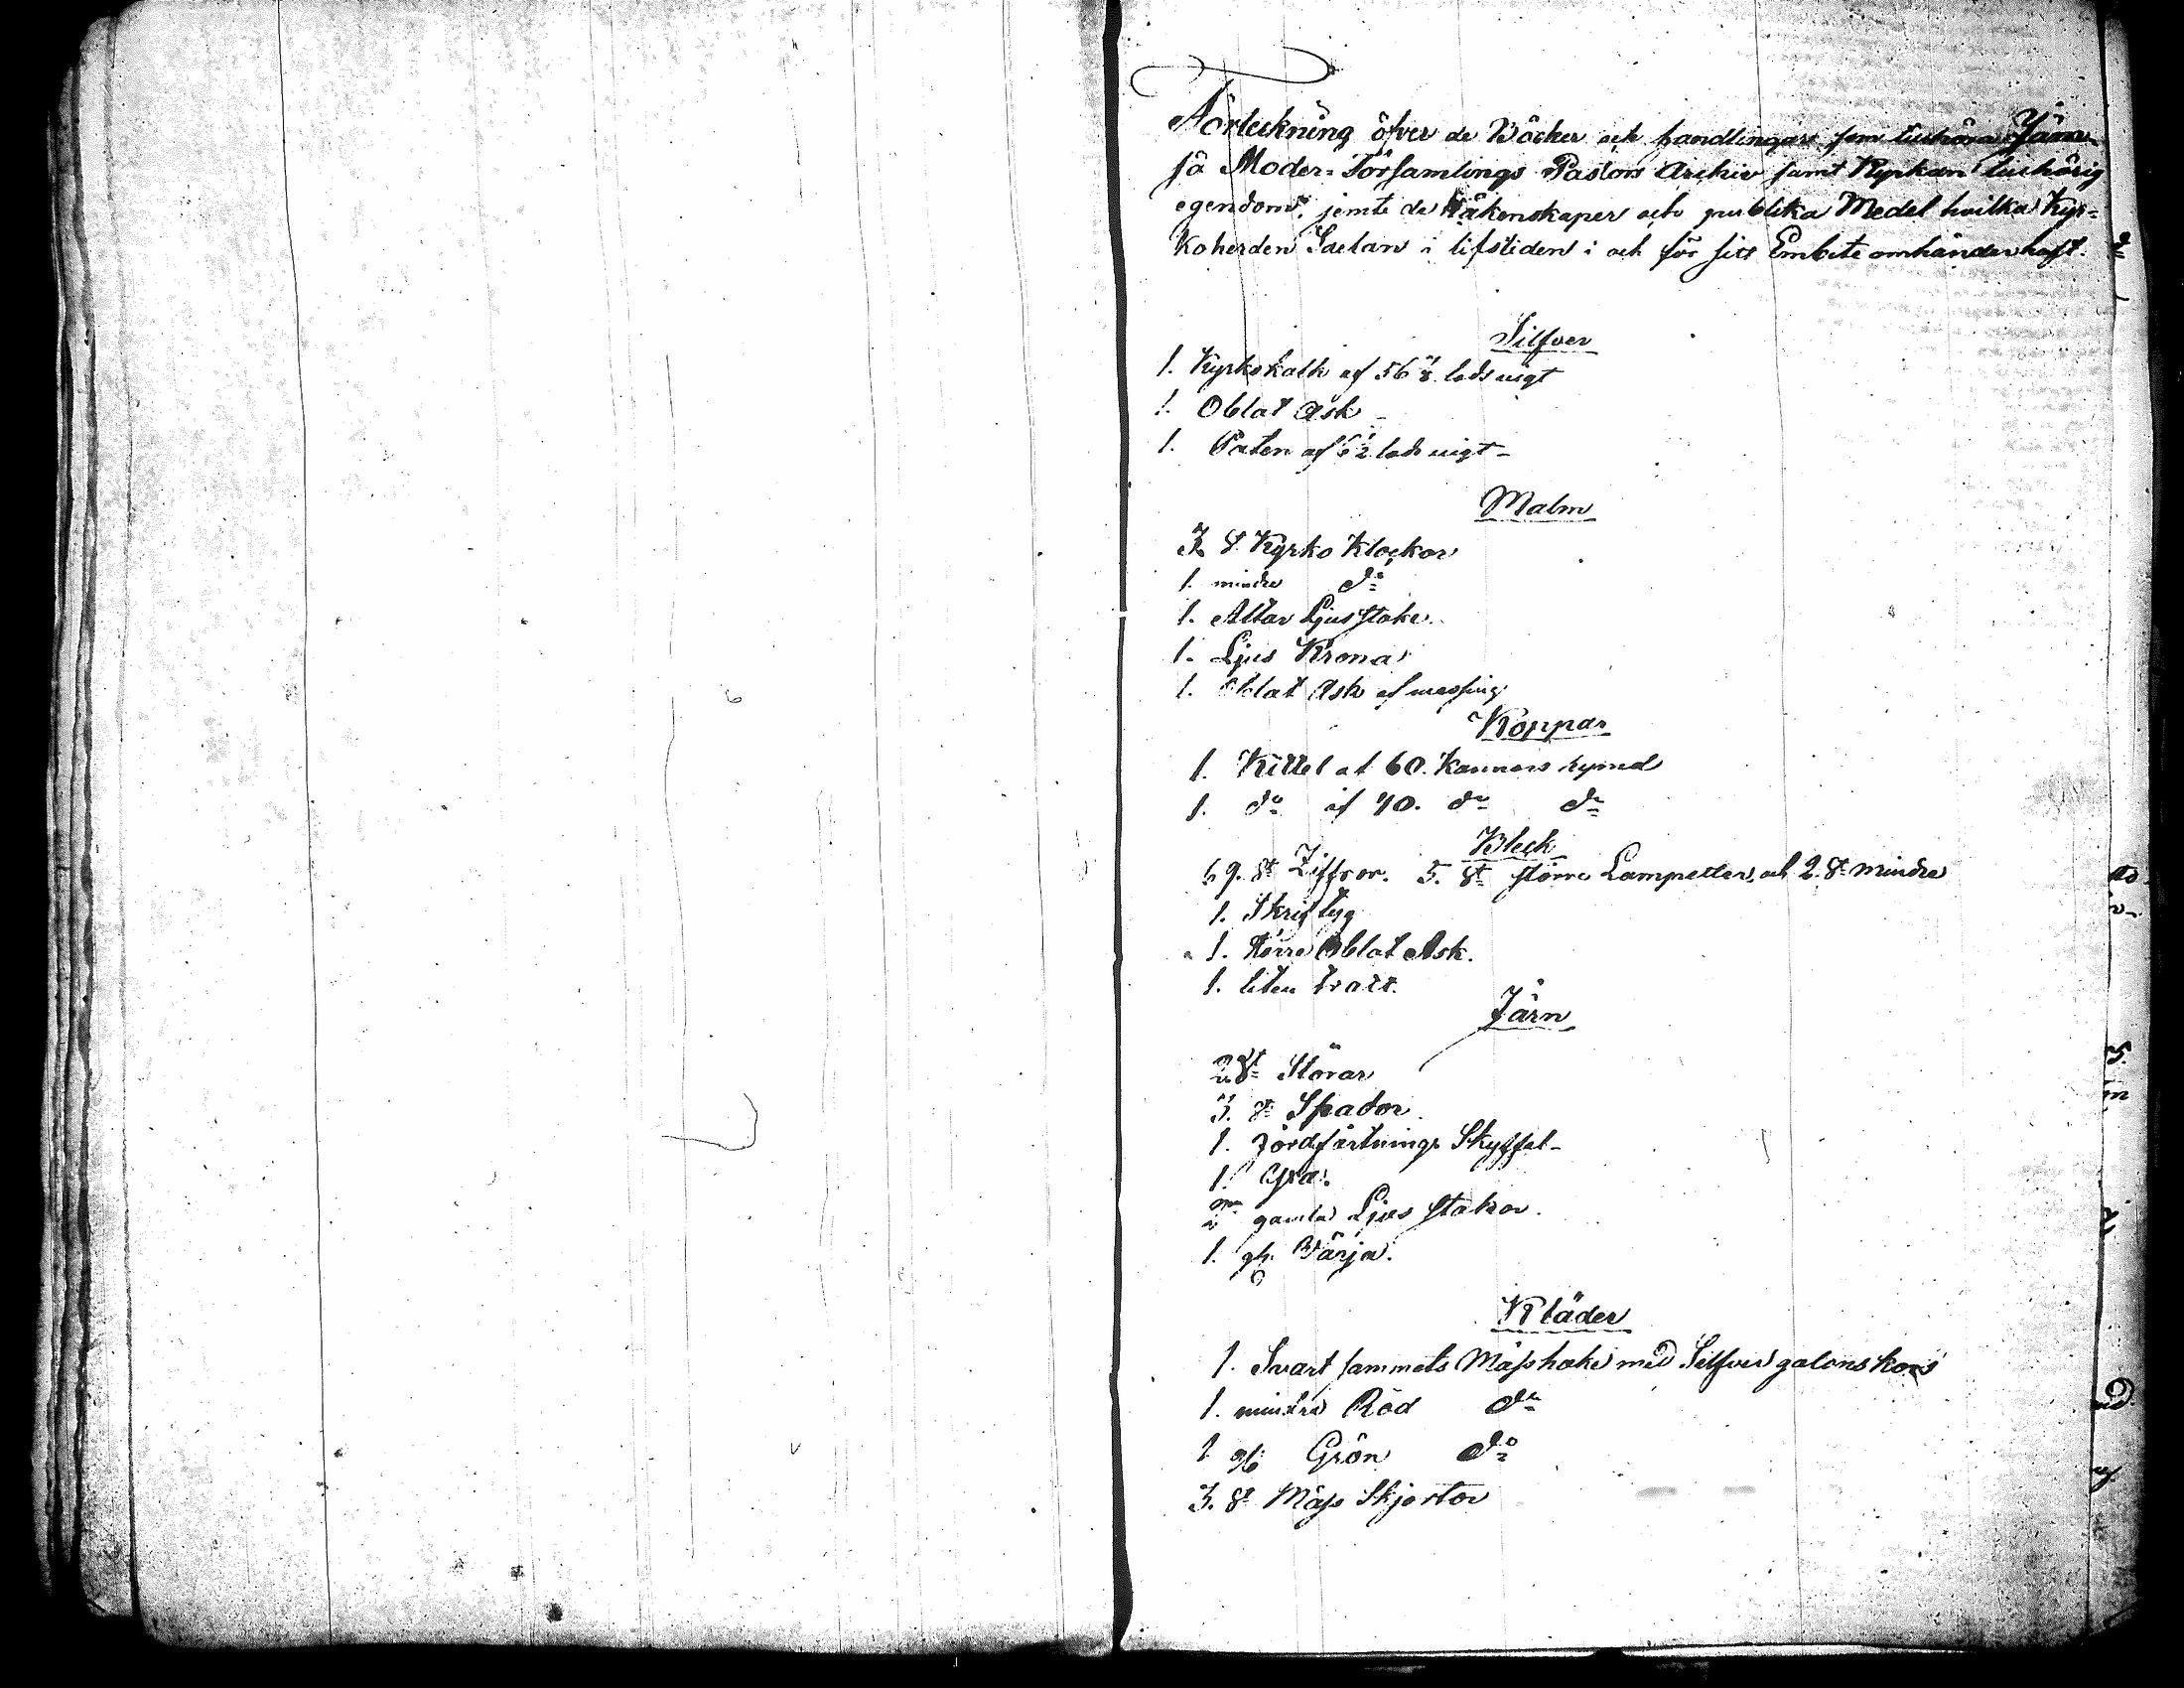 Förteckning öfver de Böcker och handlingar som tilhöra Jäm-
sä Moder-Församlings Pastors Archiv samt Kyrkan tilhörig
egendom, jemte de Räkenskaper och publika Medel hvilka Kyr-
koherden i lifstiden i och för sitt Embete omhänderhaft.
Silfver
1. Kyrkokalk af 56 lods vigt
1. Oblat Ask
1. Paten af lods vigt
Malm
3 st Kyrko Klockor
1. mindre do
1. Altar Ljusstake.
1. Ljus Krona
1. Oblat Ask af messing
Koppar
1. Kittel af 60. Kannors rymd
1. do af 40. do do
Bleck
69. st Ziffror. 5. st större Lampetter, och 2. st mindre
1. Skriftyg
1. större Oblat Ask.
1. liten tratt.
Järn
2 st Störar
3. st Spador
1. Jordfästnings Skyffel
1.
gamla Ljus stakar.
1. gl. Värja.
Kläder
1. Svart sammets Mässhake med Silfver galons kors
1. mindre Röd do
1 gl. Grön do
3. st Mäss Skjortor